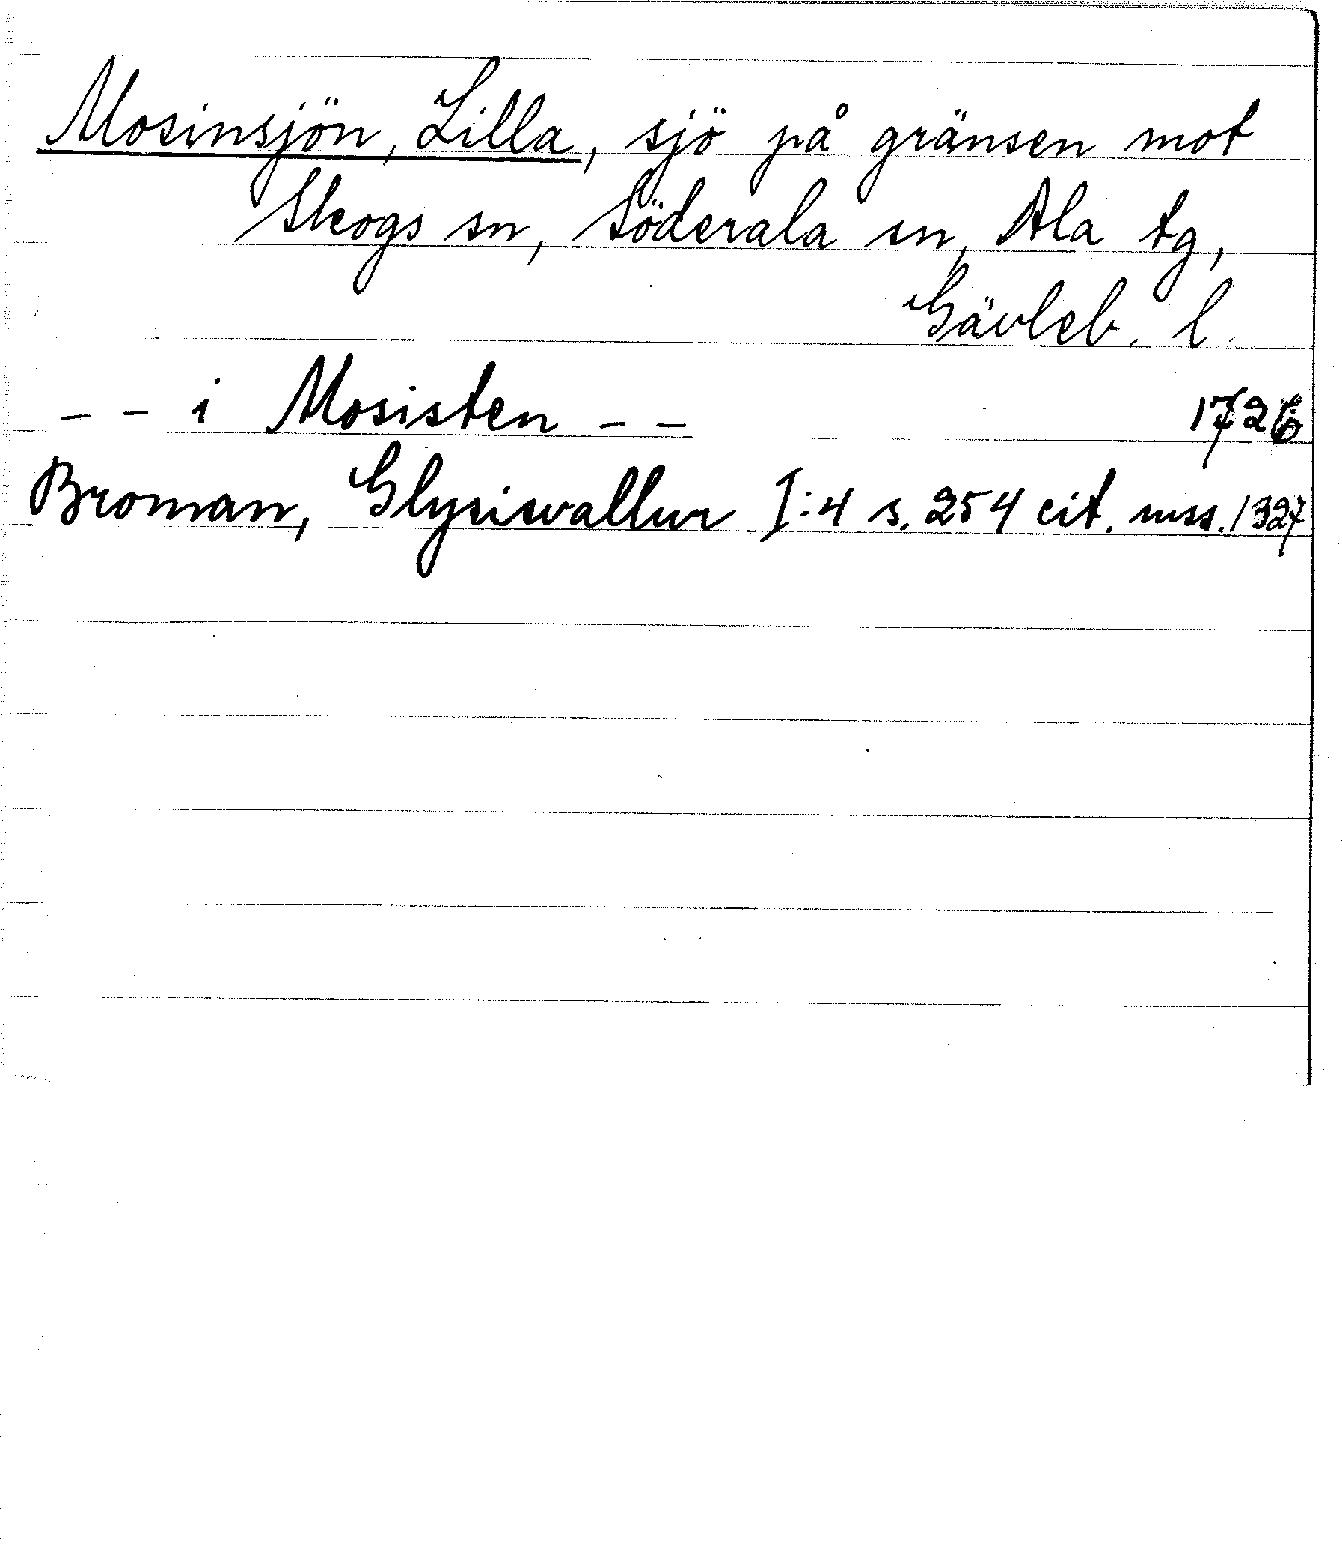 Mosinsjön, Lilla, sjö på gränsen mot
Skogs sn, Söderala sn, Ala tg,
Gävleb. l.
-- i Mosisten -- 1726
Broman, Glysisvallur I:4 s. 254 cit. mss. 1327